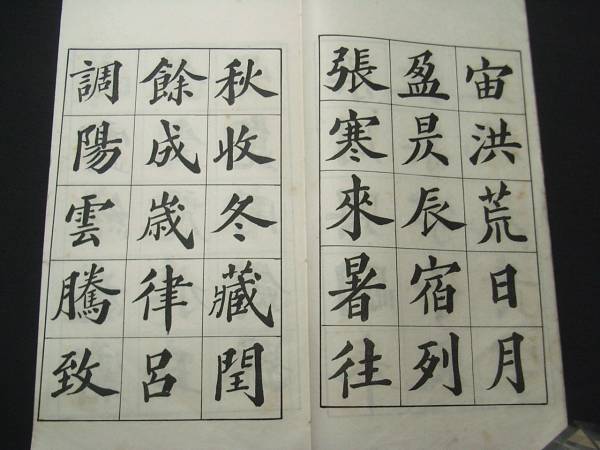 宙洪荒日月
盈昃辰宿列
張寒來暑往
秋收冬藏閏
餘成歲律呂
調陽雲騰致